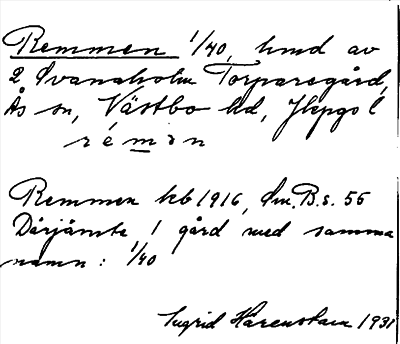 Remmen 1/40, hmd av
2 Svanaholm Torparegård,
Ås sn, Västbo hd, Jkpg l
rémən
Remmen kb 1916, Sm. B. s. 56
Därjämte 1 gård med samma
namn: 1/40
Ingrid Härenstam 1931